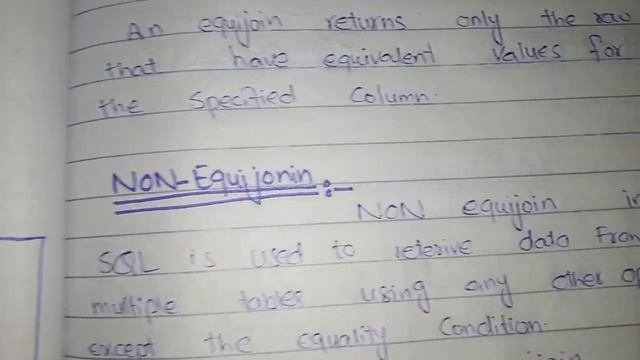 An equijoin returns only the raw
that have equivalent values for
the specified column.
NON-Equijonin :-
NON equijoin in
SQL is used to reterive data from
multiple tables using any other op
except the equality condition.